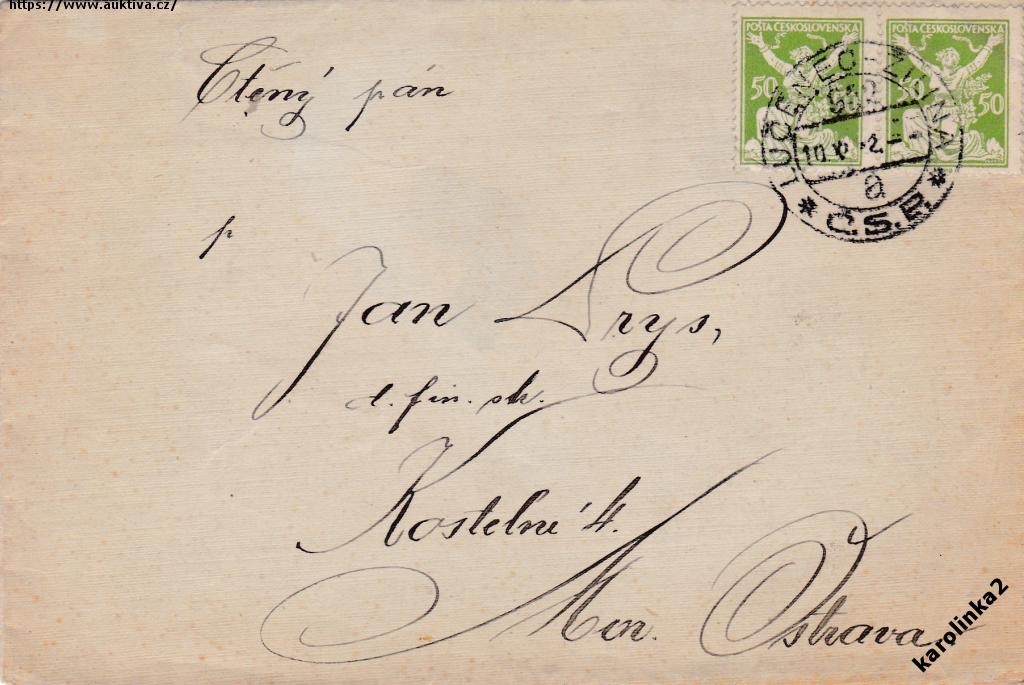 https://www.auktiva.cz/
POŠTA ČESKOSLOVENSKÁ
50
50
POŠTA ČESKOSLOVENSKÁ
50
50
LUČENEC-ZVOLEN
* Č.S.P. *
a
Ctěný pán
p
Jan Prys,
d. fin. str.
Kostelní 4.
Mor. Ostrava
karolinka2